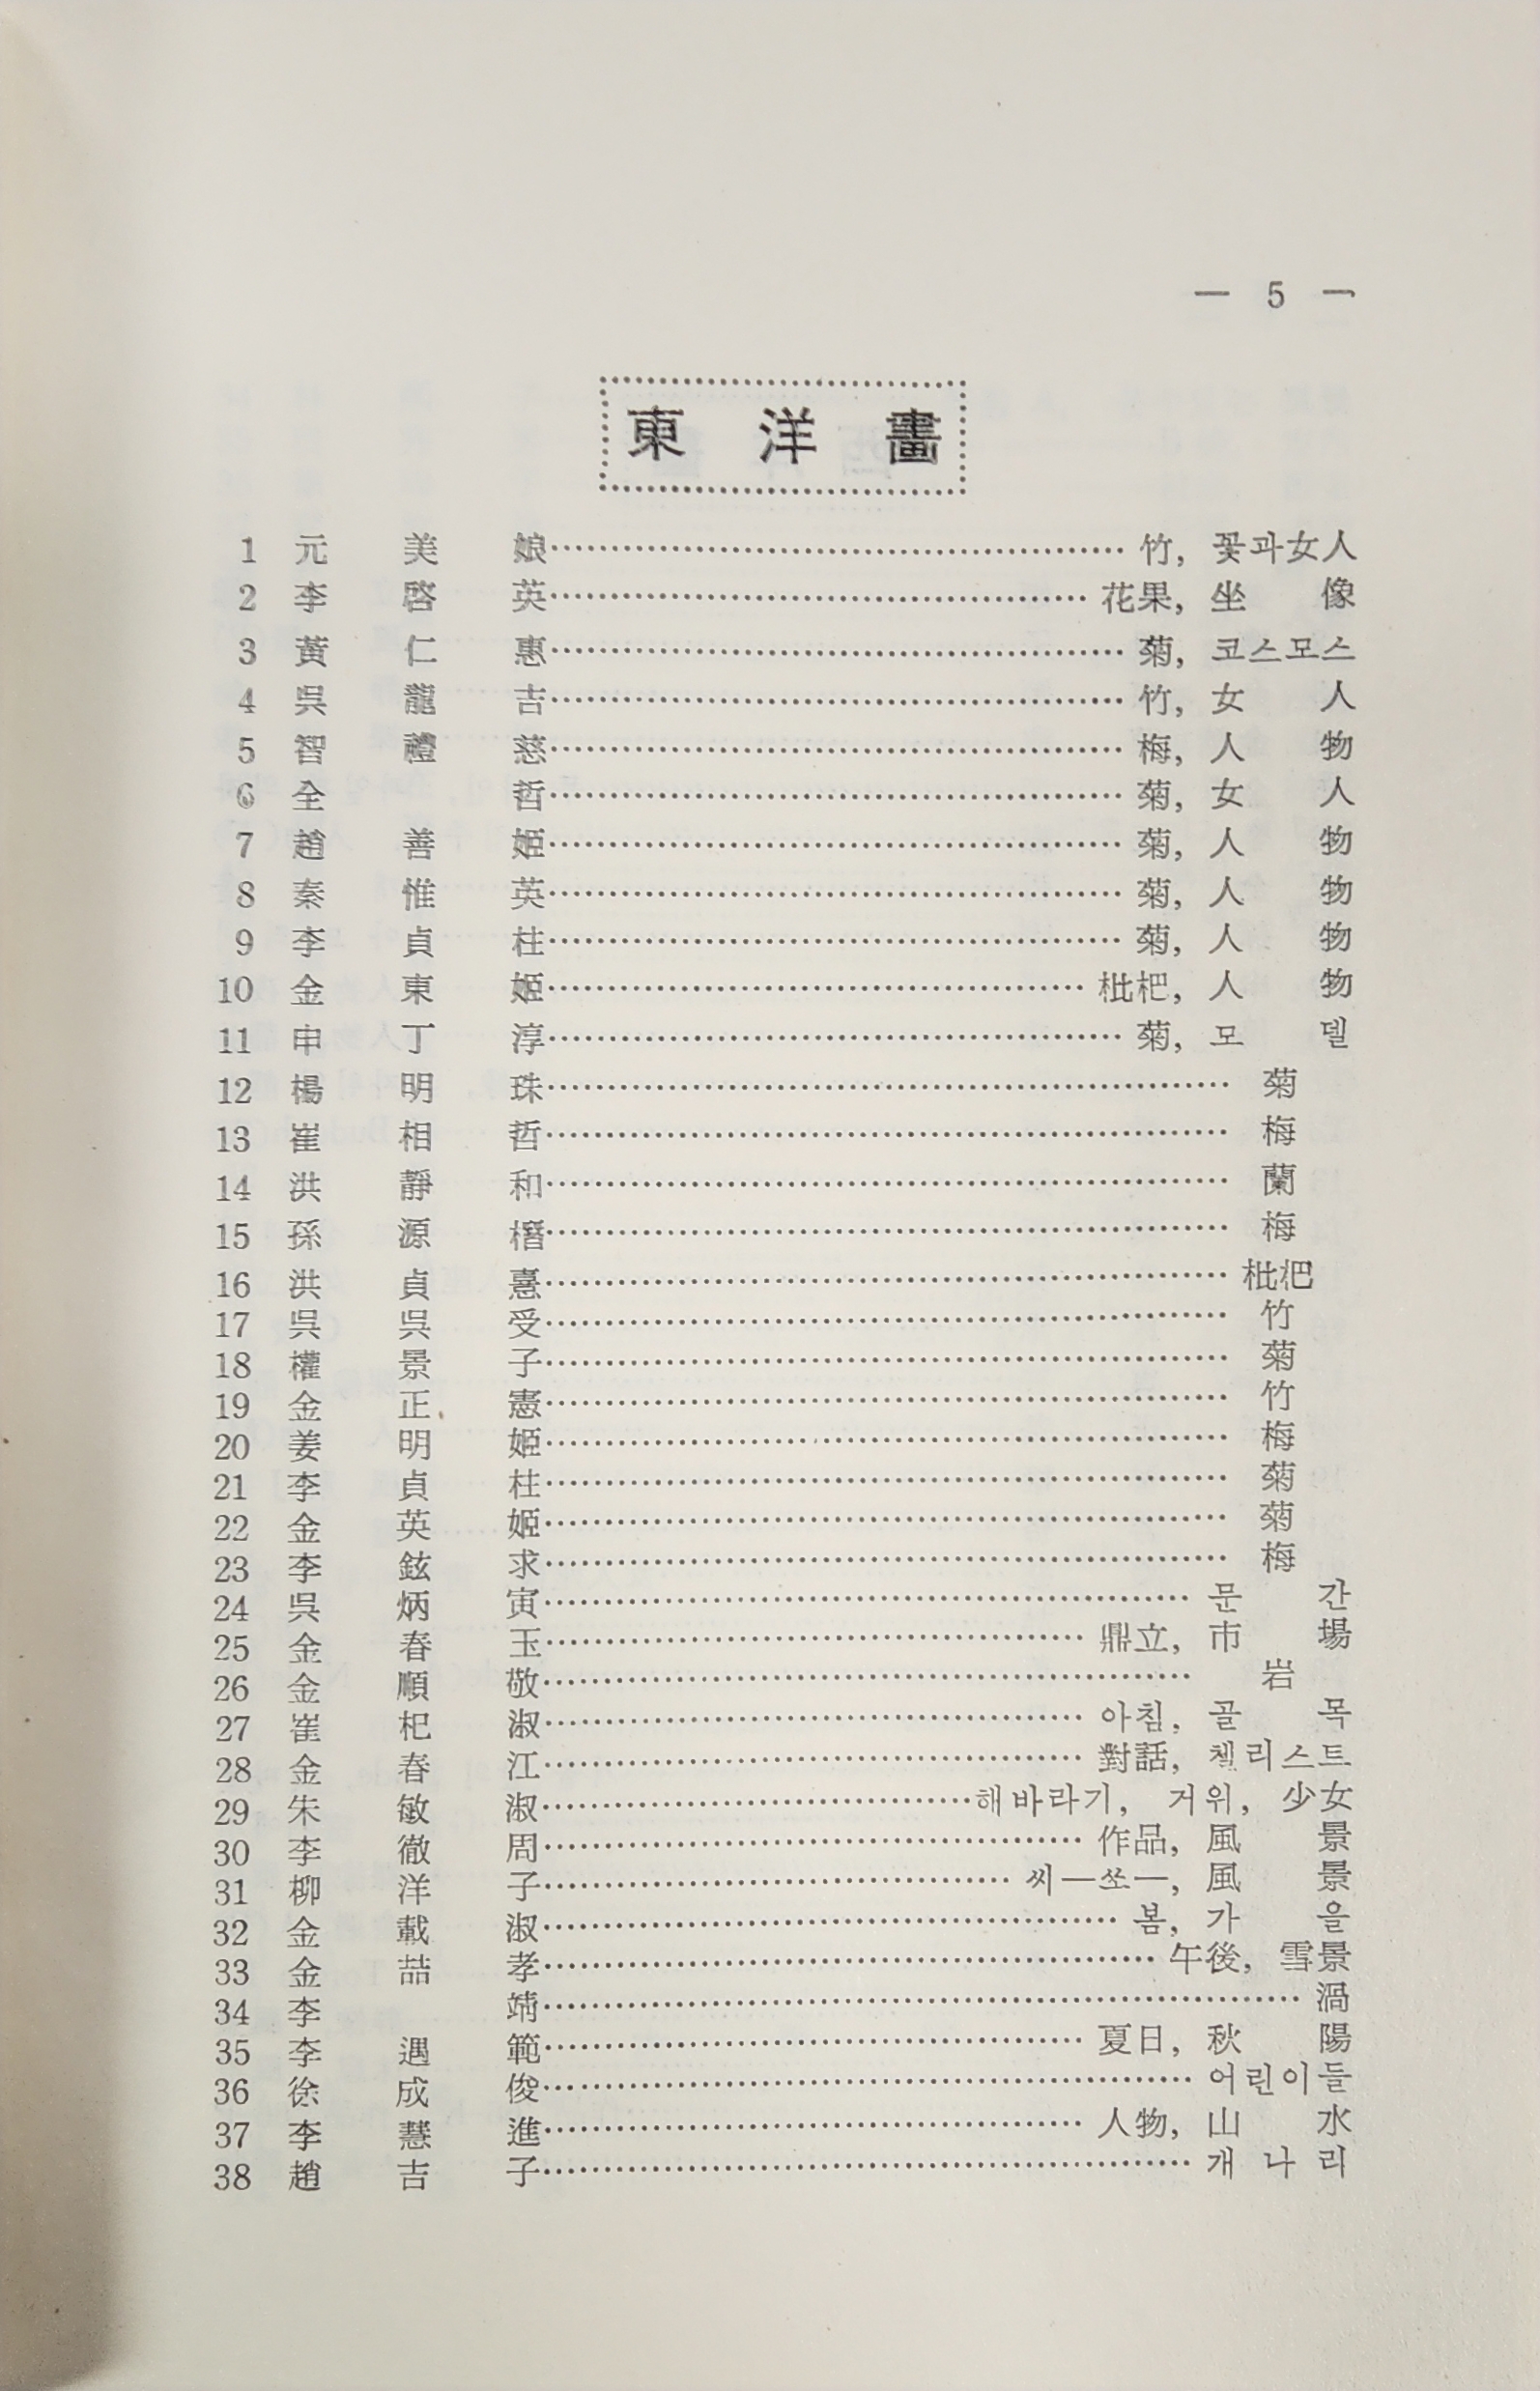 — 5 —
東洋畫
1 元美娘 竹, 꽃과女人
2 李啓英 花果, 坐像
3 黃仁惠 菊, 코스모스
4 吳龍吉 竹, 女人
5 智禮慈 梅, 人物
6 全哲 菊, 女人
7 趙善姬 菊, 人物
8 秦惟英 菊, 人物
9 李貞柱 菊, 人物
10 金東姬 枇杷, 人物
11 申丁淳 菊, 모델
12 楊明珠 菊
13 崔相哲 梅
14 洪靜和 蘭
15 孫源 梅
16 洪貞憙 枇杷
17 吳吳受 竹
18 權景子 菊
19 金正憲 竹
20 姜明姬 梅
21 李貞柱 菊
22 金英姬 菊
23 李鉉求 梅
24 吳炳寅 문간
25 金春玉 鼎立, 市場
26 金順敬 岩
27 崔杞淑 아침, 골목
28 金春江 對話, 첼리스트
29 朱敏淑 해바라기, 거위, 少女
30 李徹周 作品, 風景
31 柳洋子 씨—쏘—, 風景
32 金載淑 봄, 가을
33 金喆孝 午後, 雪景
34 李 渦
35 李遇範 夏日, 秋陽
36 徐成俊 어린이들
37 李慧進 人物, 山水
38 趙吉子 개나리